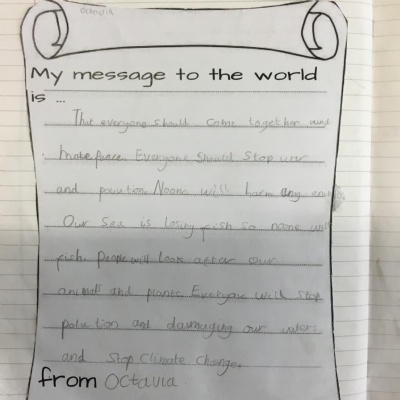 Octavia
My message to the world
is ...
That everyone should come together and
make peace. Everyone should stop war
and polution. Noone will harm any
Our Sea is losing fish so noone will
fish. People will look after our
animals and plants. Everyone will stop
polution and damaging our waters
and Stop Climate Change.
from Octavia